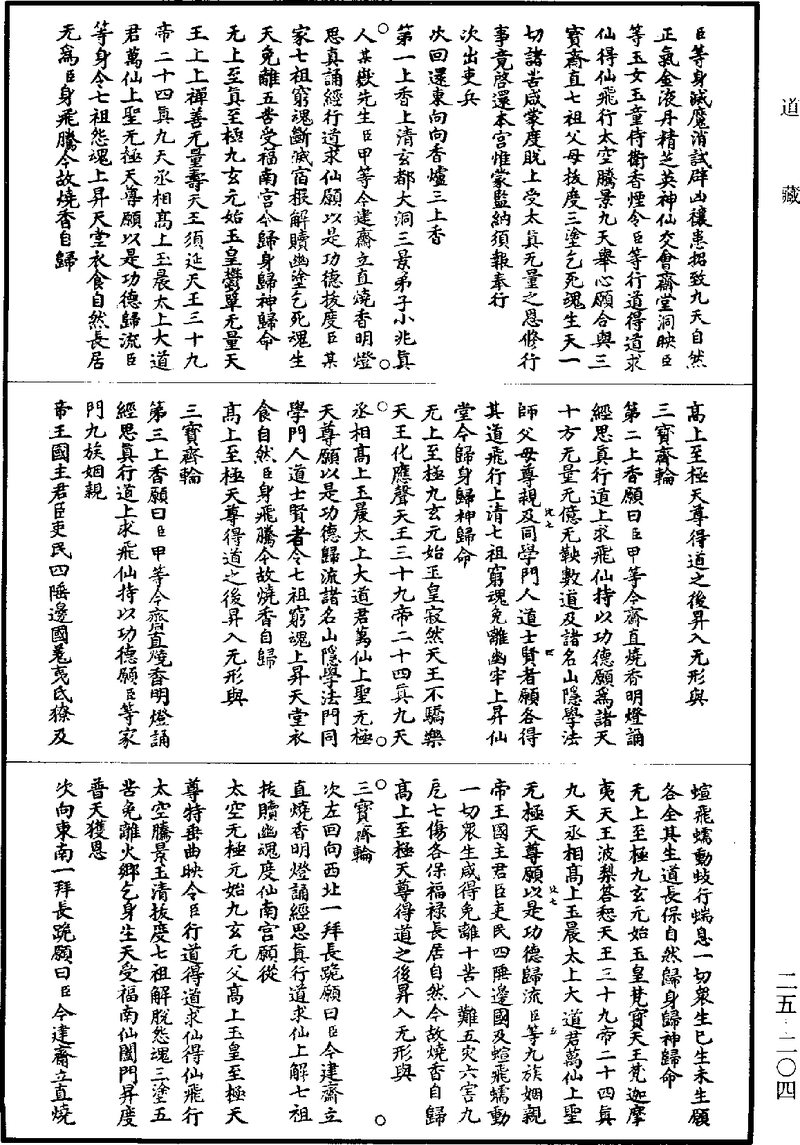 道藏
臣等身滅魔消試辟凶禳患招致九天自然
正氣金液丹精芝英神仙交會齋堂洞映臣
等玉女玉童侍衛香煙令臣等行道得道求
仙得仙飛行太空騰景九天舉心願合與三
寶齋直七祖父母拔度三塗乞死魂生天一
切諸苦咸蒙度脫上受太真无量之恩修行
事竟啓還本宫惟蒙監納須報奉行
次出吏兵
次回還東向向香爐三上香
第一上香上清玄都大洞三景弟子小兆真
人某嶽先生臣甲等今建齋立直燒香明燈
思真誦經行道求仙願以是功德拔度臣某
家七祖窮魂斷滅宿根解贖幽塗乞死魂生
天免離五苦受福南宫今歸身歸神歸命
无上至真至極九玄元始玉皇鬱單无量天
王上上禪善无量壽天王須延天王三十九
帝二十四真九天丞相高上玉晨太上大道
君萬仙上聖无極天尊願以是功德歸流臣
等身令七祖怨魂上昇天堂衣食自然長居
无爲臣身飛騰今故燒香自歸
高上至極天尊得道之後昇入无形與
三寶齊輪
第二上香願曰臣甲等今齋直燒香明燈誦
經思真行道上求飛仙持以功德願爲諸天
十方无量无億无鞅數道及諸名山隱學法
師父母尊親及同學門人道士賢者願各得
其道飛行上清七祖窮魂免離幽牢上昇仙
堂今歸身歸神歸命
无上至極九玄元始玉皇寂然天王不驕樂
天王化應聲天王三十九帝二十四真九天
丞相高上玉晨太上大道君萬仙上聖无極
天尊願以是功德歸流諸名山隱學法門同
學門人道士賢者令七祖窮魂上昇天堂衣
食自然臣身飛騰今故燒香自歸
高上至極天尊得道之後昇入无形與
三寶齊輪
第三上香願曰臣甲等今齋直燒香明燈誦
經思真行道上求飛仙持以功德願臣等家
門九族姻親
帝王國主君臣吏民四陲邊國羌夷氐獠及
蝖飛蠕動蚑行蜎息一切衆生已生未生願
各全其生道長保自然歸身歸神歸命
无上至極九玄元始玉皇梵寶天王梵迦摩
夷天王波梨答惒天王三十九帝二十四真
九天丞相高上玉晨太上大道君萬仙上聖
无極天尊願以是功德歸流臣等九族姻親
帝王國主君臣吏民四陲邊國及蝖飛蠕動
一切衆生咸得免離十苦八難五灾六害九
厄七傷各保福禄長居自然今故燒香自歸
高上至極天尊得道之後昇入无形與
三寶齊輪
次左回向西北一拜長跪願曰臣今建齋立
直燒香明燈誦經思真行道求仙上解七祖
拔贖幽魂度仙南宫願從
太空无極元始九玄元父高上玉皇至極天
尊特垂曲映令臣行道得道求仙得仙飛行
太空騰景玉清拔度七祖解脫怨魂三塗五
苦免離火鄉乞身生天受福南仙闔門昇度
普天獲恩
次向東南一拜長跪願曰臣今建齋立直燒
二五·二〇四